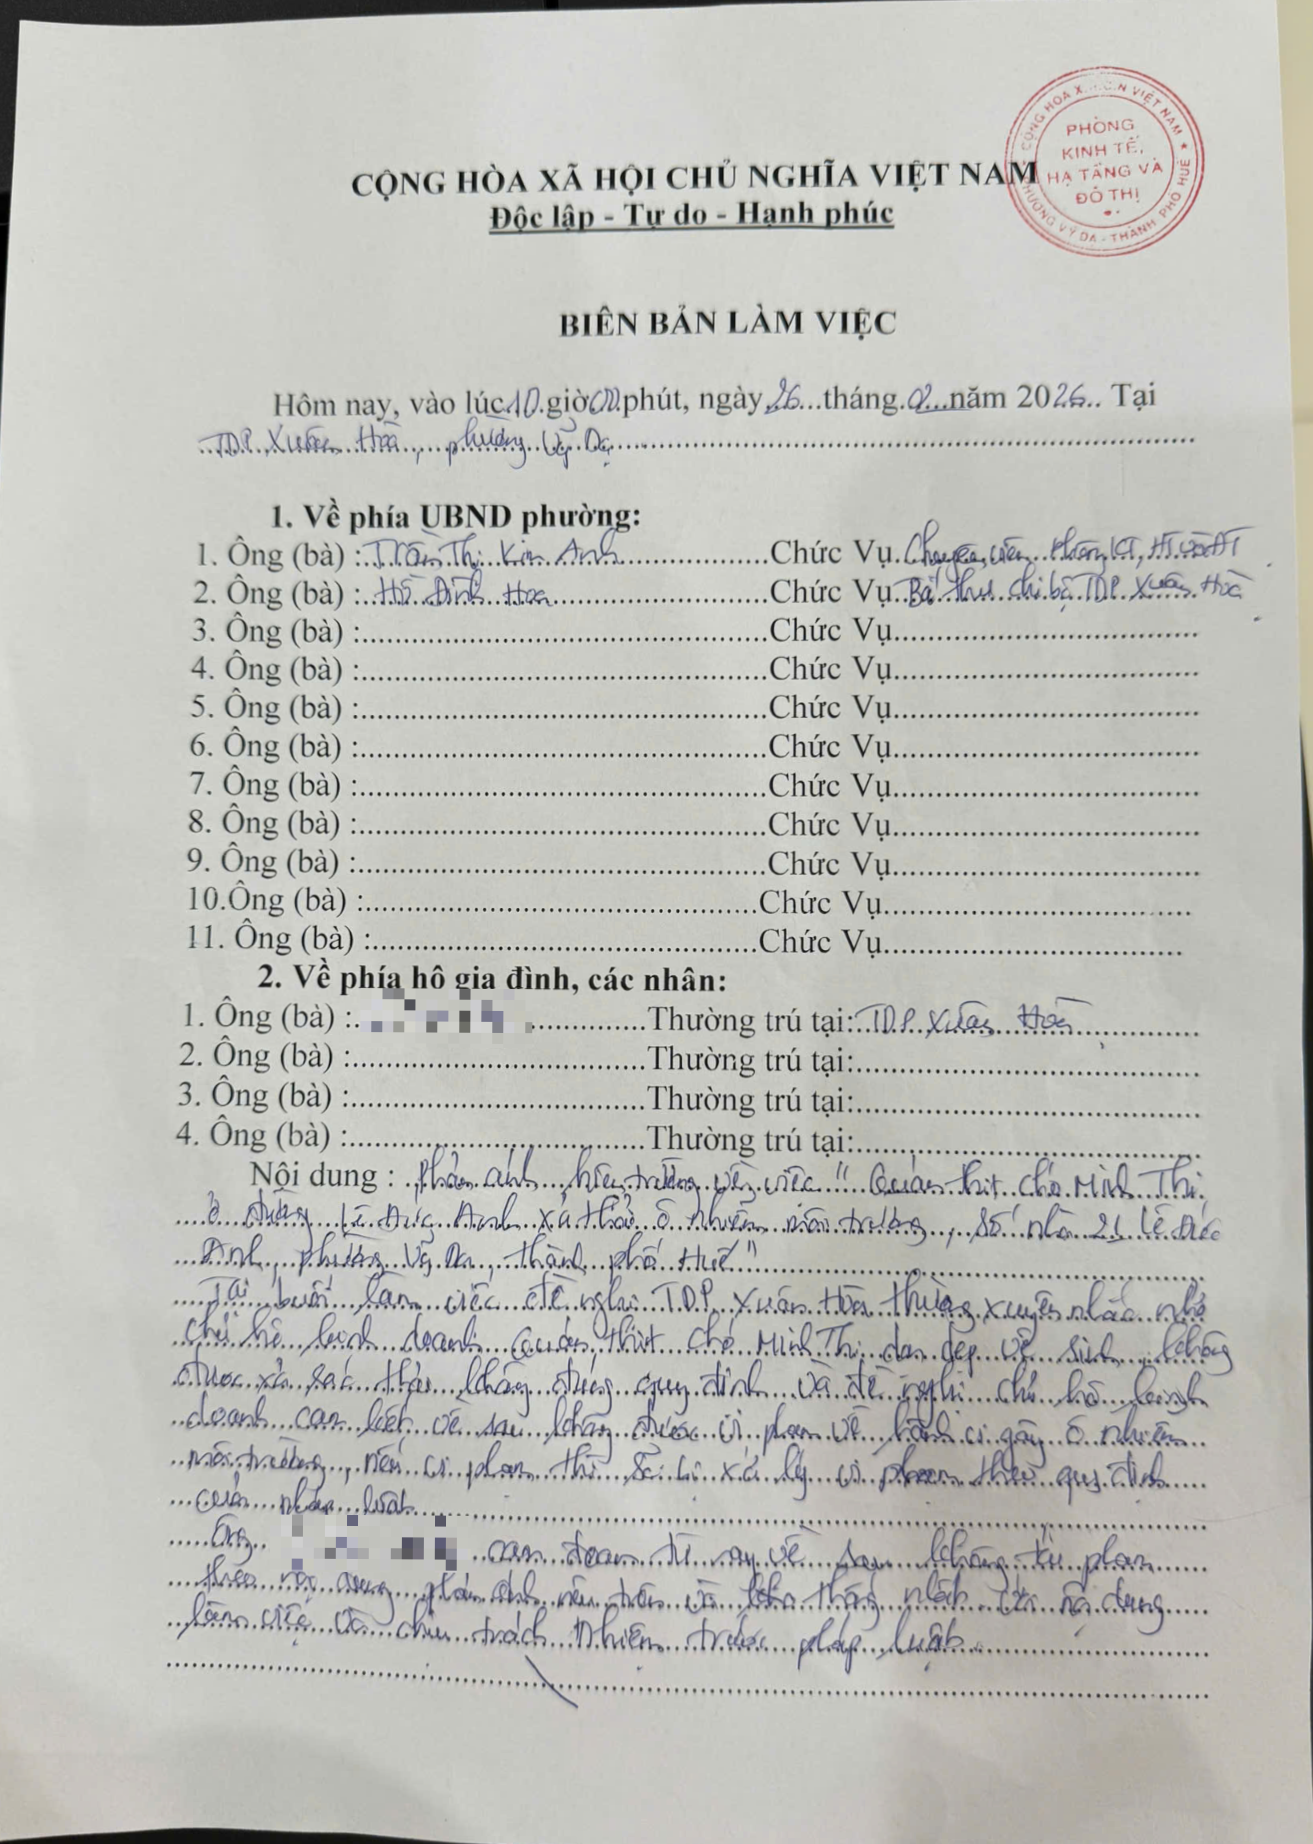 CỘNG HÒA X.H.C.N VIỆT NAM
PHÒNG
KINH TẾ,
HẠ TẦNG VÀ
ĐÔ THỊ
PHƯỜNG VỸ DẠ - THÀNH PHỐ HUẾ
CỘNG HÒA XÃ HỘI CHỦ NGHĨA VIỆT NAM
Độc lập - Tự do - Hạnh phúc
BIÊN BẢN LÀM VIỆC
Hôm nay, vào lúc 10 giờ 00 phút, ngày 26 tháng 02 năm 2026.. Tại
TDP Xuân Hoà, phường Vỹ Dạ
1. Về phía UBND phường:
1. Ông (bà) : Trần Thị Kim Anh Chức Vụ Chuyên viên Phòng KT, HT và ĐT
2. Ông (bà) : Hồ Đình Hoa Chức Vụ Bí thư chi bộ TDP Xuân Hoà
3. Ông (bà) : Chức Vụ
4. Ông (bà) : Chức Vụ
5. Ông (bà) : Chức Vụ
6. Ông (bà) : Chức Vụ
7. Ông (bà) : Chức Vụ
8. Ông (bà) : Chức Vụ
9. Ông (bà) : Chức Vụ
10.Ông (bà) : Chức Vụ
11. Ông (bà) : Chức Vụ
2. Về phía hô gia đình, các nhân:
1. Ông (bà) : Thường trú tại: TDP Xuân Hoà
2. Ông (bà) : Thường trú tại:
3. Ông (bà) : Thường trú tại:
4. Ông (bà) : Thường trú tại:
Nội dung : Phản ánh hiện trường về việc "Quán thịt chó Minh Thi
ở đường Lê Đức Anh xả thải ô nhiễm môi trường, Số nhà 21 Lê Đức
Anh, phường Vỹ Dạ, thành phố Huế"
Tại buổi làm việc đề nghị TDP Xuân Hoà thường xuyên nhắc nhở
chủ hộ kinh doanh Quán thịt chó Minh Thi dọn dẹp vệ sinh, không
được xả rác thải không đúng quy định và đề nghị chủ hộ kinh
doanh cam kết về sau không được vi phạm về hành vi gây ô nhiễm
môi trường, nếu vi phạm thì sẽ bị xử lý vi phạm theo quy định
của pháp luật.
Ông cam đoan từ nay về sau không tái phạm
theo nội dung phản ánh nêu trên và nội dung
làm việc và chịu trách nhiệm trước pháp luật.